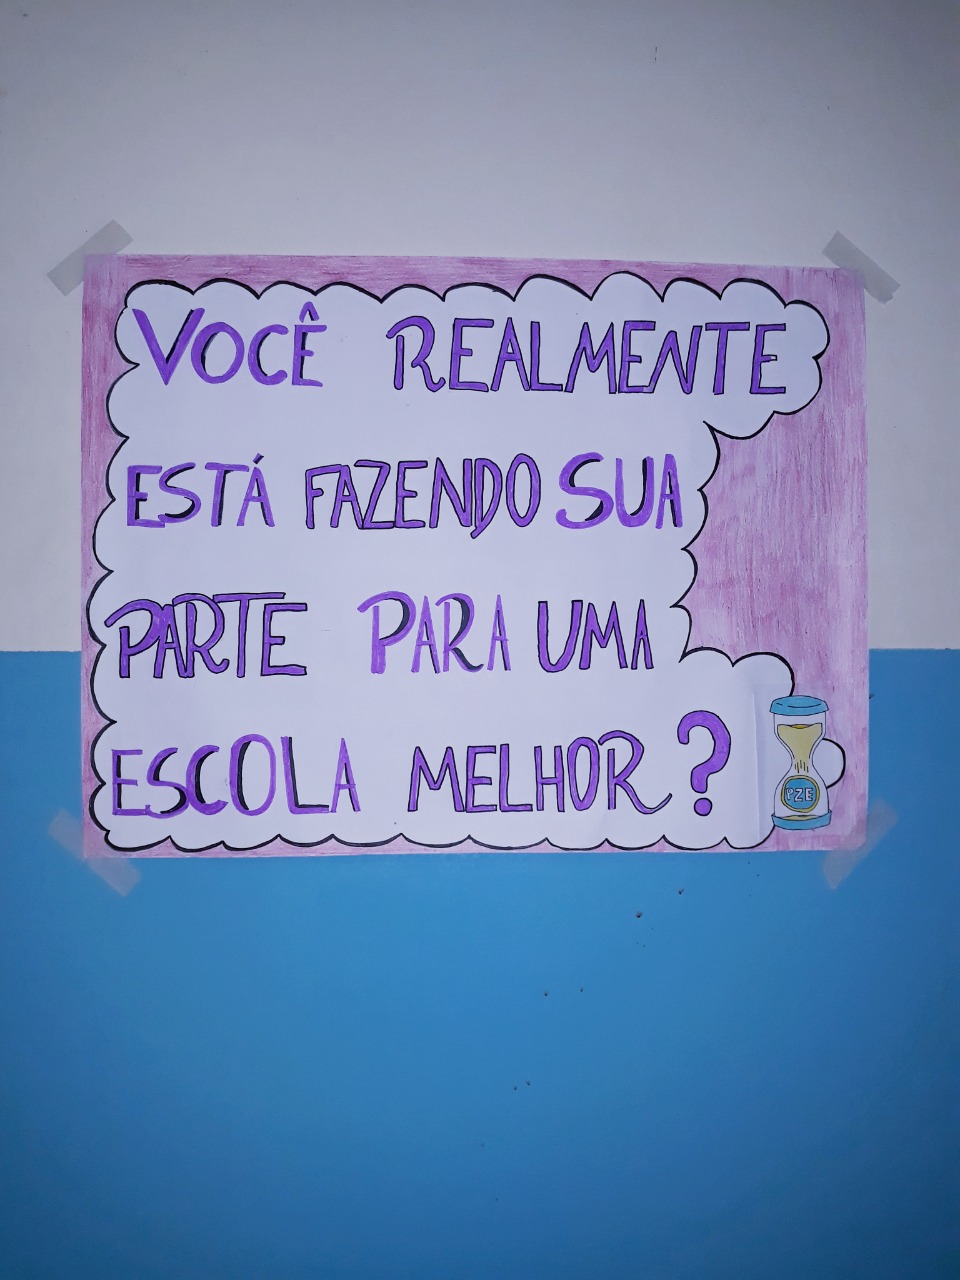 VOCÊ REALMENTE
ESTÁ FAZENDO SUA
PARTE PARA UMA
ESCOLA MELHOR?
PZE